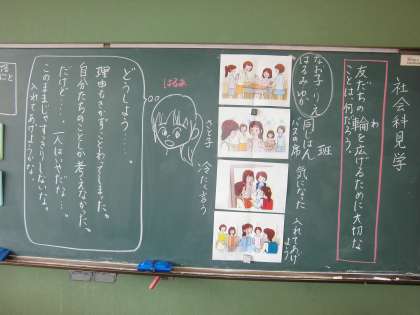 社会科見学
友だちの輪を広げるために大切な
わ
ことは何だろう。
なお子 りえ
はるみ ゆか
同じはん
班
バスの席
気になった
入れてあげよう
さと子
冷たく言う
はるみ
どうしよう……。
理由もきかずことわってしまった。
自分たちのことしか考えなかった。
だけど……、一人はいやだな…。
このままじゃすっきりしないな。
入れてあげようかな。